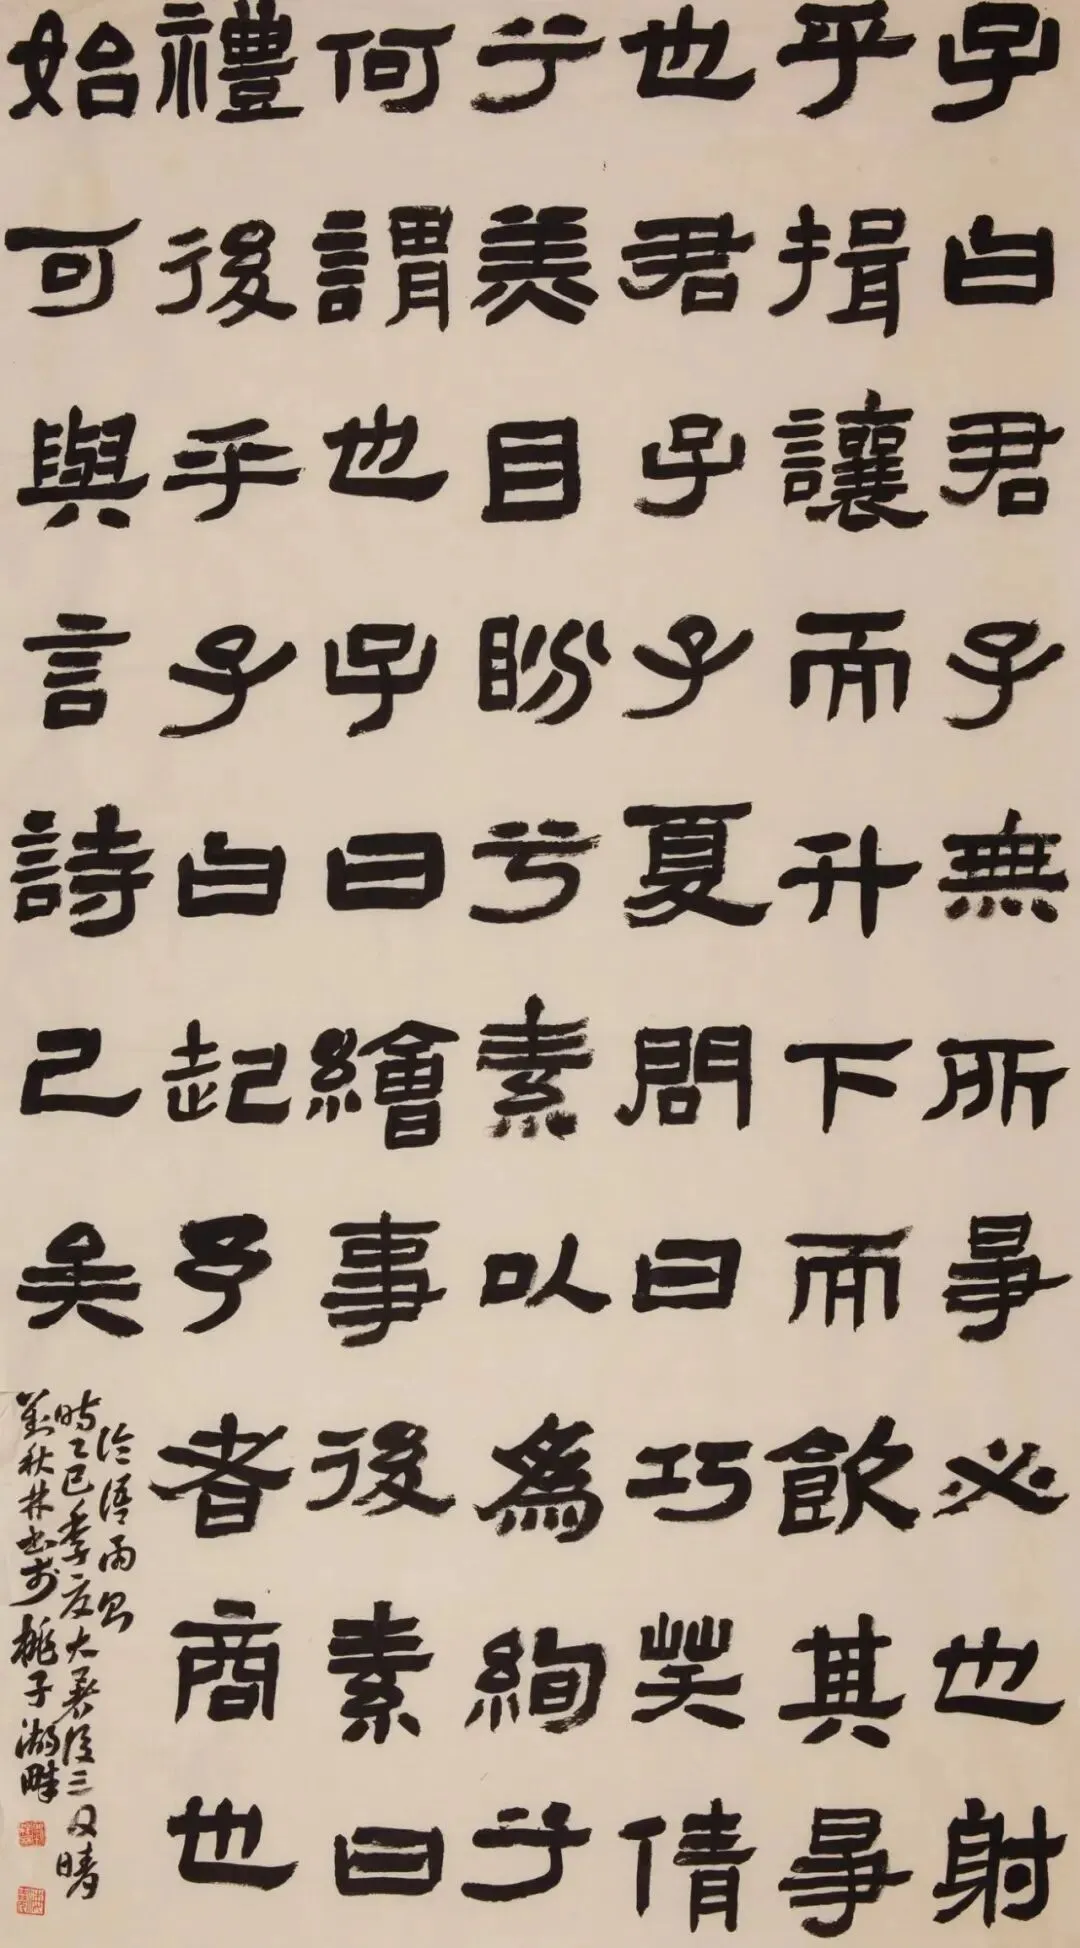 子曰君子無所爭必也射
乎揖讓而升下而飲其爭
也君子子夏問曰巧笑倩
兮美目盼兮素以為絢兮
何謂也子曰繪事後素曰
禮後乎子曰起予者商也
始可與言詩已矣
論語兩則
時乙巳季夏大暑後三日晴
劉秋林書於桃子湖畔